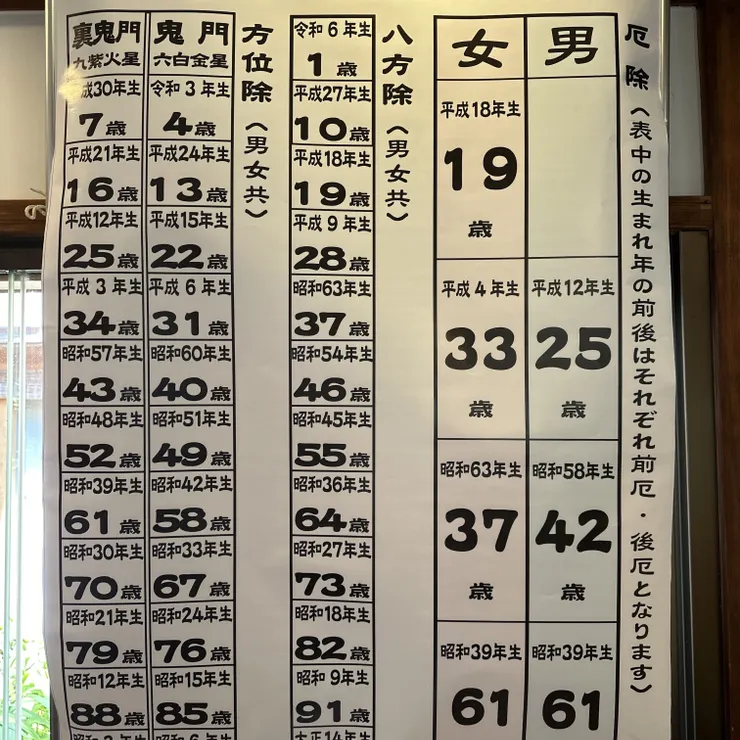 厄除（表中の生まれ年の前後はそれぞれ前厄・後厄となります）
男
平成12年生
25
歳
昭和58年生
42
歳
昭和39年生
61
女
平成18年生
19
歳
平成4年生
33
歳
昭和63年生
37
歳
昭和39年生
61
八方除（男女共）
令和6年生
1歳
平成27年生
10歳
平成18年生
19歳
平成9年生
28歳
昭和63年生
37歳
昭和54年生
46歳
昭和45年生
55歳
昭和36年生
64歳
昭和27年生
73歳
昭和18年生
82歳
昭和9年生
91歳
大正14年生
方位除（男女共）
鬼門
六白金星
令和3年生
4歳
平成24年生
13歳
平成15年生
22歳
平成6年生
31歳
昭和60年生
40歳
昭和51年生
49歳
昭和42年生
58歳
昭和33年生
67歳
昭和24年生
76歳
昭和15年生
85歳
昭和6年生
裏鬼門
九紫火星
平成30年生
7歳
平成21年生
16歳
平成12年生
25歳
平成3年生
34歳
昭和57年生
43歳
昭和48年生
52歳
昭和39年生
61歳
昭和30年生
70歳
昭和21年生
79歳
昭和12年生
88歳
昭和3年生